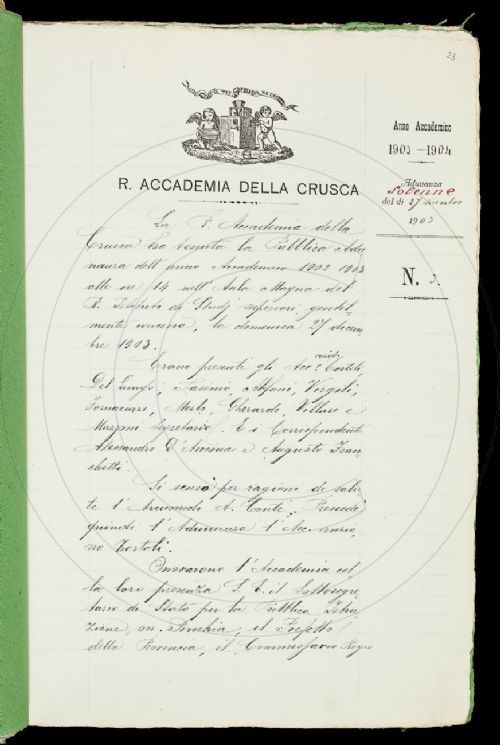 23
Anno Accademico
1903-1904
Adunanza
Solenne
del di 27 dicembre
1903
N. 3.
R. ACCADEMIA DELLA CRUSCA
La R. Accademia della
Crusca ha tenuta la Pubblica Adu
nanza dell'anno Accademico 1902 1903
alle ore 14 nell'Aula Magna del
R. Istituto di Studj superiori, gentil-
mente concessa, la domenica 27 dicem
bre 1903.
Erano presenti gli Acc.i residti Tortoli,
Del Lungo, Rasinio, Alfani, Vergoli,
Fornaciari, Morto, Gherardi, Volturo e
Mazzoni Segretario. E i Corrispondenti
Alessandro D'Ancona e Augusto Fran
chetti.
Si scusò per ragione di salu
te l'Arciconsolo A. Conti. Presiede
quindi l'Adunanza l'Acc. anzia
no Tortoli.
Onorarono l'Accademia col
la loro presenza S. E. il Sottosegre
tario di Stato per la Pubblica Istru
zione, on. Pinchia, il Prefetto
della Provincia, il Commissario Regio